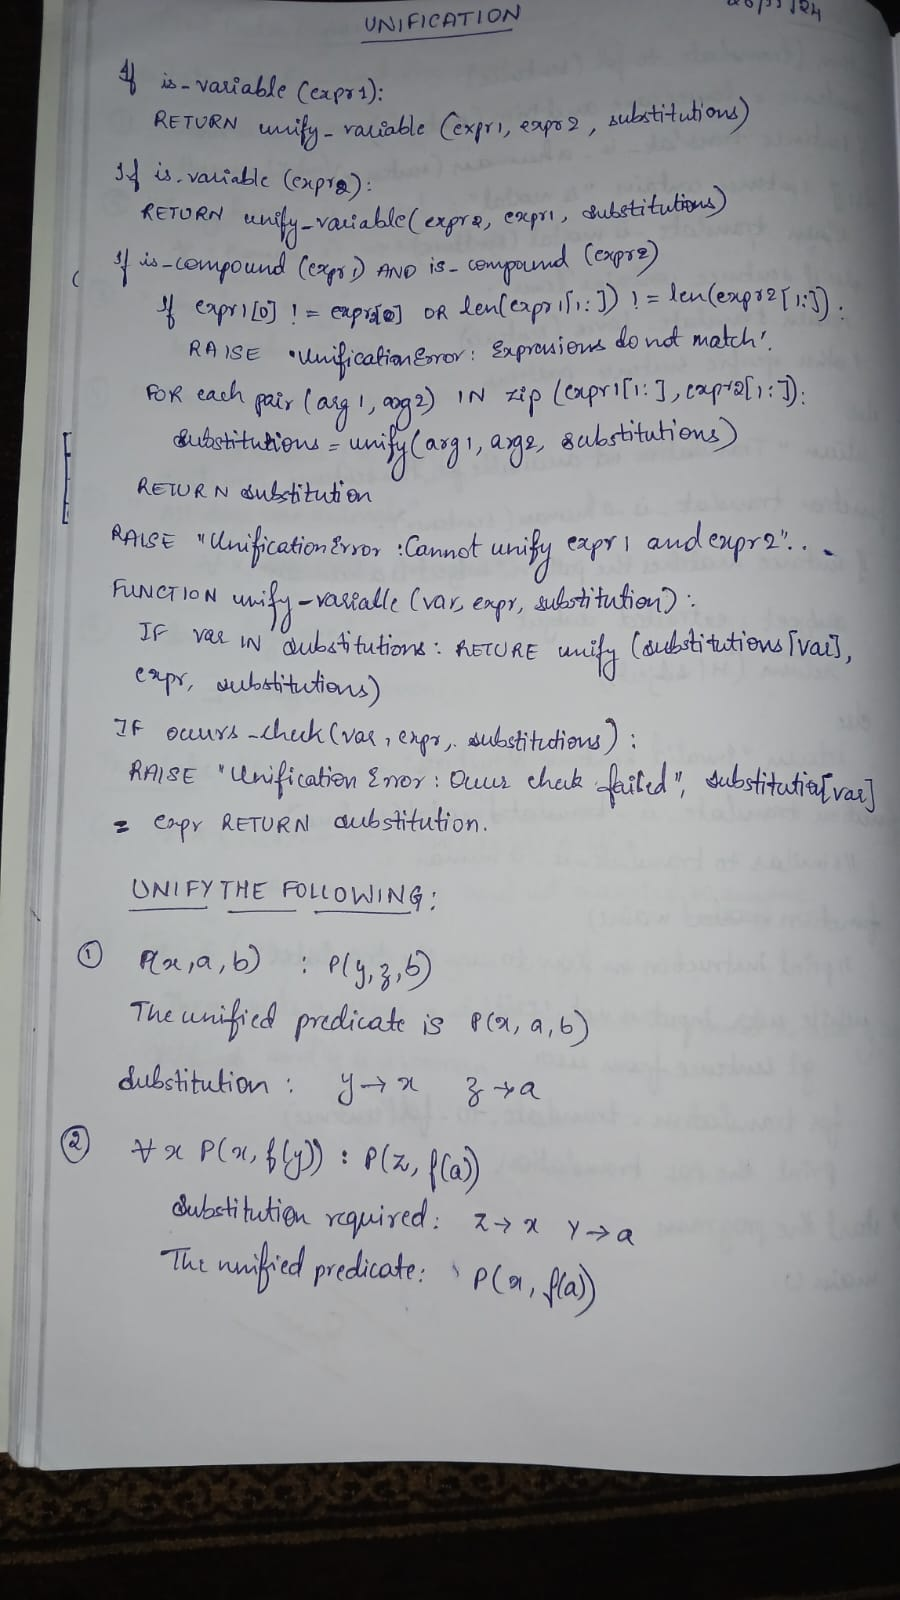 UNIFICATION
If is-variable (expr1):
RETURN unify-variable (expr1, expr2, substitutions)
If is-variable (expr2):
RETURN unify-variable(expr2, expr1, substitutions)
If is-compound (expr1) AND is-compound (expr2)
If expr1[0] != expr2[0] OR len(expr1[1:]) != len(expr2[1:]):
RAISE "UnificationError: Expressions do not match'.
FOR each pair (arg1, arg2) IN zip (expr1[1:], expr2[1:]):
substitutions = unify(arg1, arg2, substitutions)
RETURN substitution
RAISE "UnificationError :Cannot unify expr1 and expr2"..
FUNCTION unify-variable (var, expr, substitution):
IF var IN substitutions: RETURE unify (substitutions[var],
expr, substitutions)
IF occurs-check(var, expr, substitutions):
RAISE "Unification Error: Occur check failed", substitution[var]
= expr RETURN substitution.
UNIFY THE FOLLOWING:
① P(x,a,b) : P(y,z,b)
The unified predicate is P(x, a, b)
substitution: y→x z→a
② ∀x P(x, f(y)) : P(z, f(a))
Substitution required: z→x Y→a
The unified predicate: P(x, f(a))